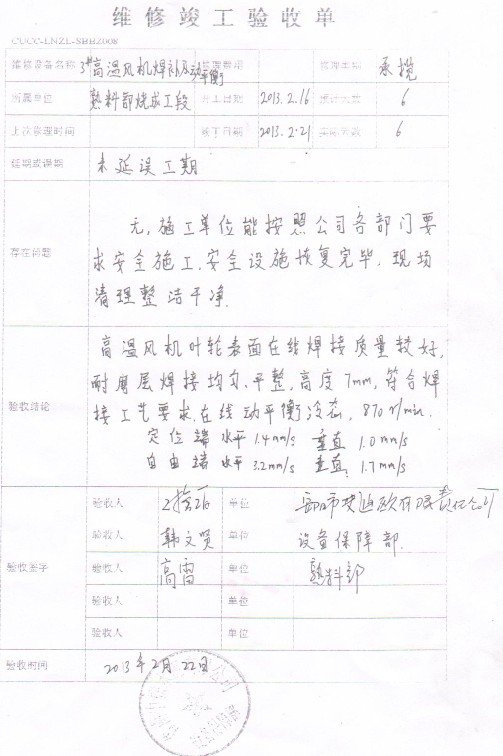 维修竣工验收单
CUCC-LNZL-SBHZ008
维修设备名称 3#高温风机焊补及动平衡 修理类别 承揽
所属单位 熟料部烧成工段 开工日期 2013.2.16 预计天数 6
上次修理时间 竣工日期 2013.2.21 实际天数 6
延期或误期 未延误工期
存在问题 无,施工单位能按照公司各部门要
求安全施工.安全设施恢复完毕.现场
清理整洁干净.
验收结论 高温风机叶轮表面在线焊接质量较好,
耐磨层焊接均匀.平整,高度7mm,符合焊
接工艺要求.在线动平衡冷态,870r/min.
定位端 水平 1.4mm/s 垂直 1.0mm/s
自由端 水平 3.2mm/s 垂直: 1.7mm/s
验收签字
验收人 单位 有限责任公司
验收人 韩文贤 单位 设备保障部.
验收人 高雷 单位 熟料部
验收人 单位
验收人 单位
验收时间 2013年2月22日